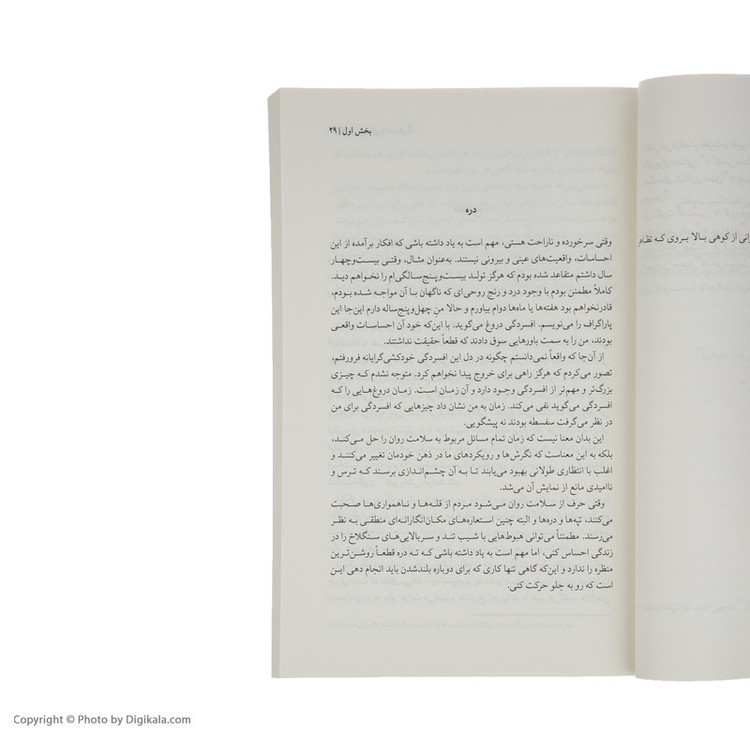 بخش اول | ۲۹
دره
وقتی سرخورده و ناراحت هستی، مهم است به یاد داشته باشی که افکار برآمده از این
احساسات، واقعیت‌های عینی و بیرونی نیستند. به‌عنوان مثال، وقتی بیست‌وچهار
سال داشتم متقاعد شده بودم که هرگز تولد بیست‌وپنج‌سالگی‌ام را نخواهم دید.
کاملاً مطمئن بودم با وجود درد و رنج روحی‌ای که ناگهان با آن مواجه شده بودم،
قادرنخواهم بود هفته‌ها یا ماه‌ها دوام بیاورم و حالا من چهل‌وپنج‌ساله دارم این‌جا این
پاراگراف را می‌نویسم. افسردگی دروغ می‌گوید. با این‌که خود آن احساسات واقعی
بودند، من را به سمت باورهایی سوق دادند که قطعاً حقیقت نداشتند.
از آن‌جا که واقعاً نمی‌دانستم چگونه در دل این افسردگی خودکشی‌گرایانه فرورفتم،
تصور می‌کردم که هرگز راهی برای خروج پیدا نخواهم کرد. متوجه نشدم که چیزی
بزرگ‌تر و مهم‌تر از افسردگی وجود دارد و آن زمان است. زمان دروغ‌هایی را که
افسردگی می‌گوید نفی می‌کند. زمان به من نشان داد چیزهایی که افسردگی برای من
در نظر می‌گرفت سفسطه بودند نه پیشگویی.
این بدان معنا نیست که زمان تمام مسائل مربوط به سلامت روان را حل می‌کند،
بلکه به این معناست که نگرش‌ها و رویکردهای ما در ذهن خودمان تغییر می‌کنند و
اغلب با انتظاری طولانی بهبود می‌یابند تا به آن چشم‌اندازی برسند که ترس و
ناامیدی مانع از نمایش آن می‌شد.
وقتی حرف از سلامت روان می‌شود مردم از قله‌ها و ناهمواری‌ها صحبت
می‌کنند، تپه‌ها و دره‌ها و البته چنین استعاره‌های مکان‌انگارانه‌ای منطقی به نظر
می‌رسند. مطمئناً می‌توانی هبوط‌هایی با شیب تند و سربالایی‌های سنگلاخ را در
زندگی احساس کنی، اما مهم است به یاد داشته باشی که ته دره قطعاً روشن‌ترین
منظره را ندارد و این‌که گاهی تنها کاری که برای دوباره بلندشدن باید انجام دهی این
است که رو به جلو حرکت کنی.
از کوهی بالا بروی که
Copyright © Photo by Digikala.com